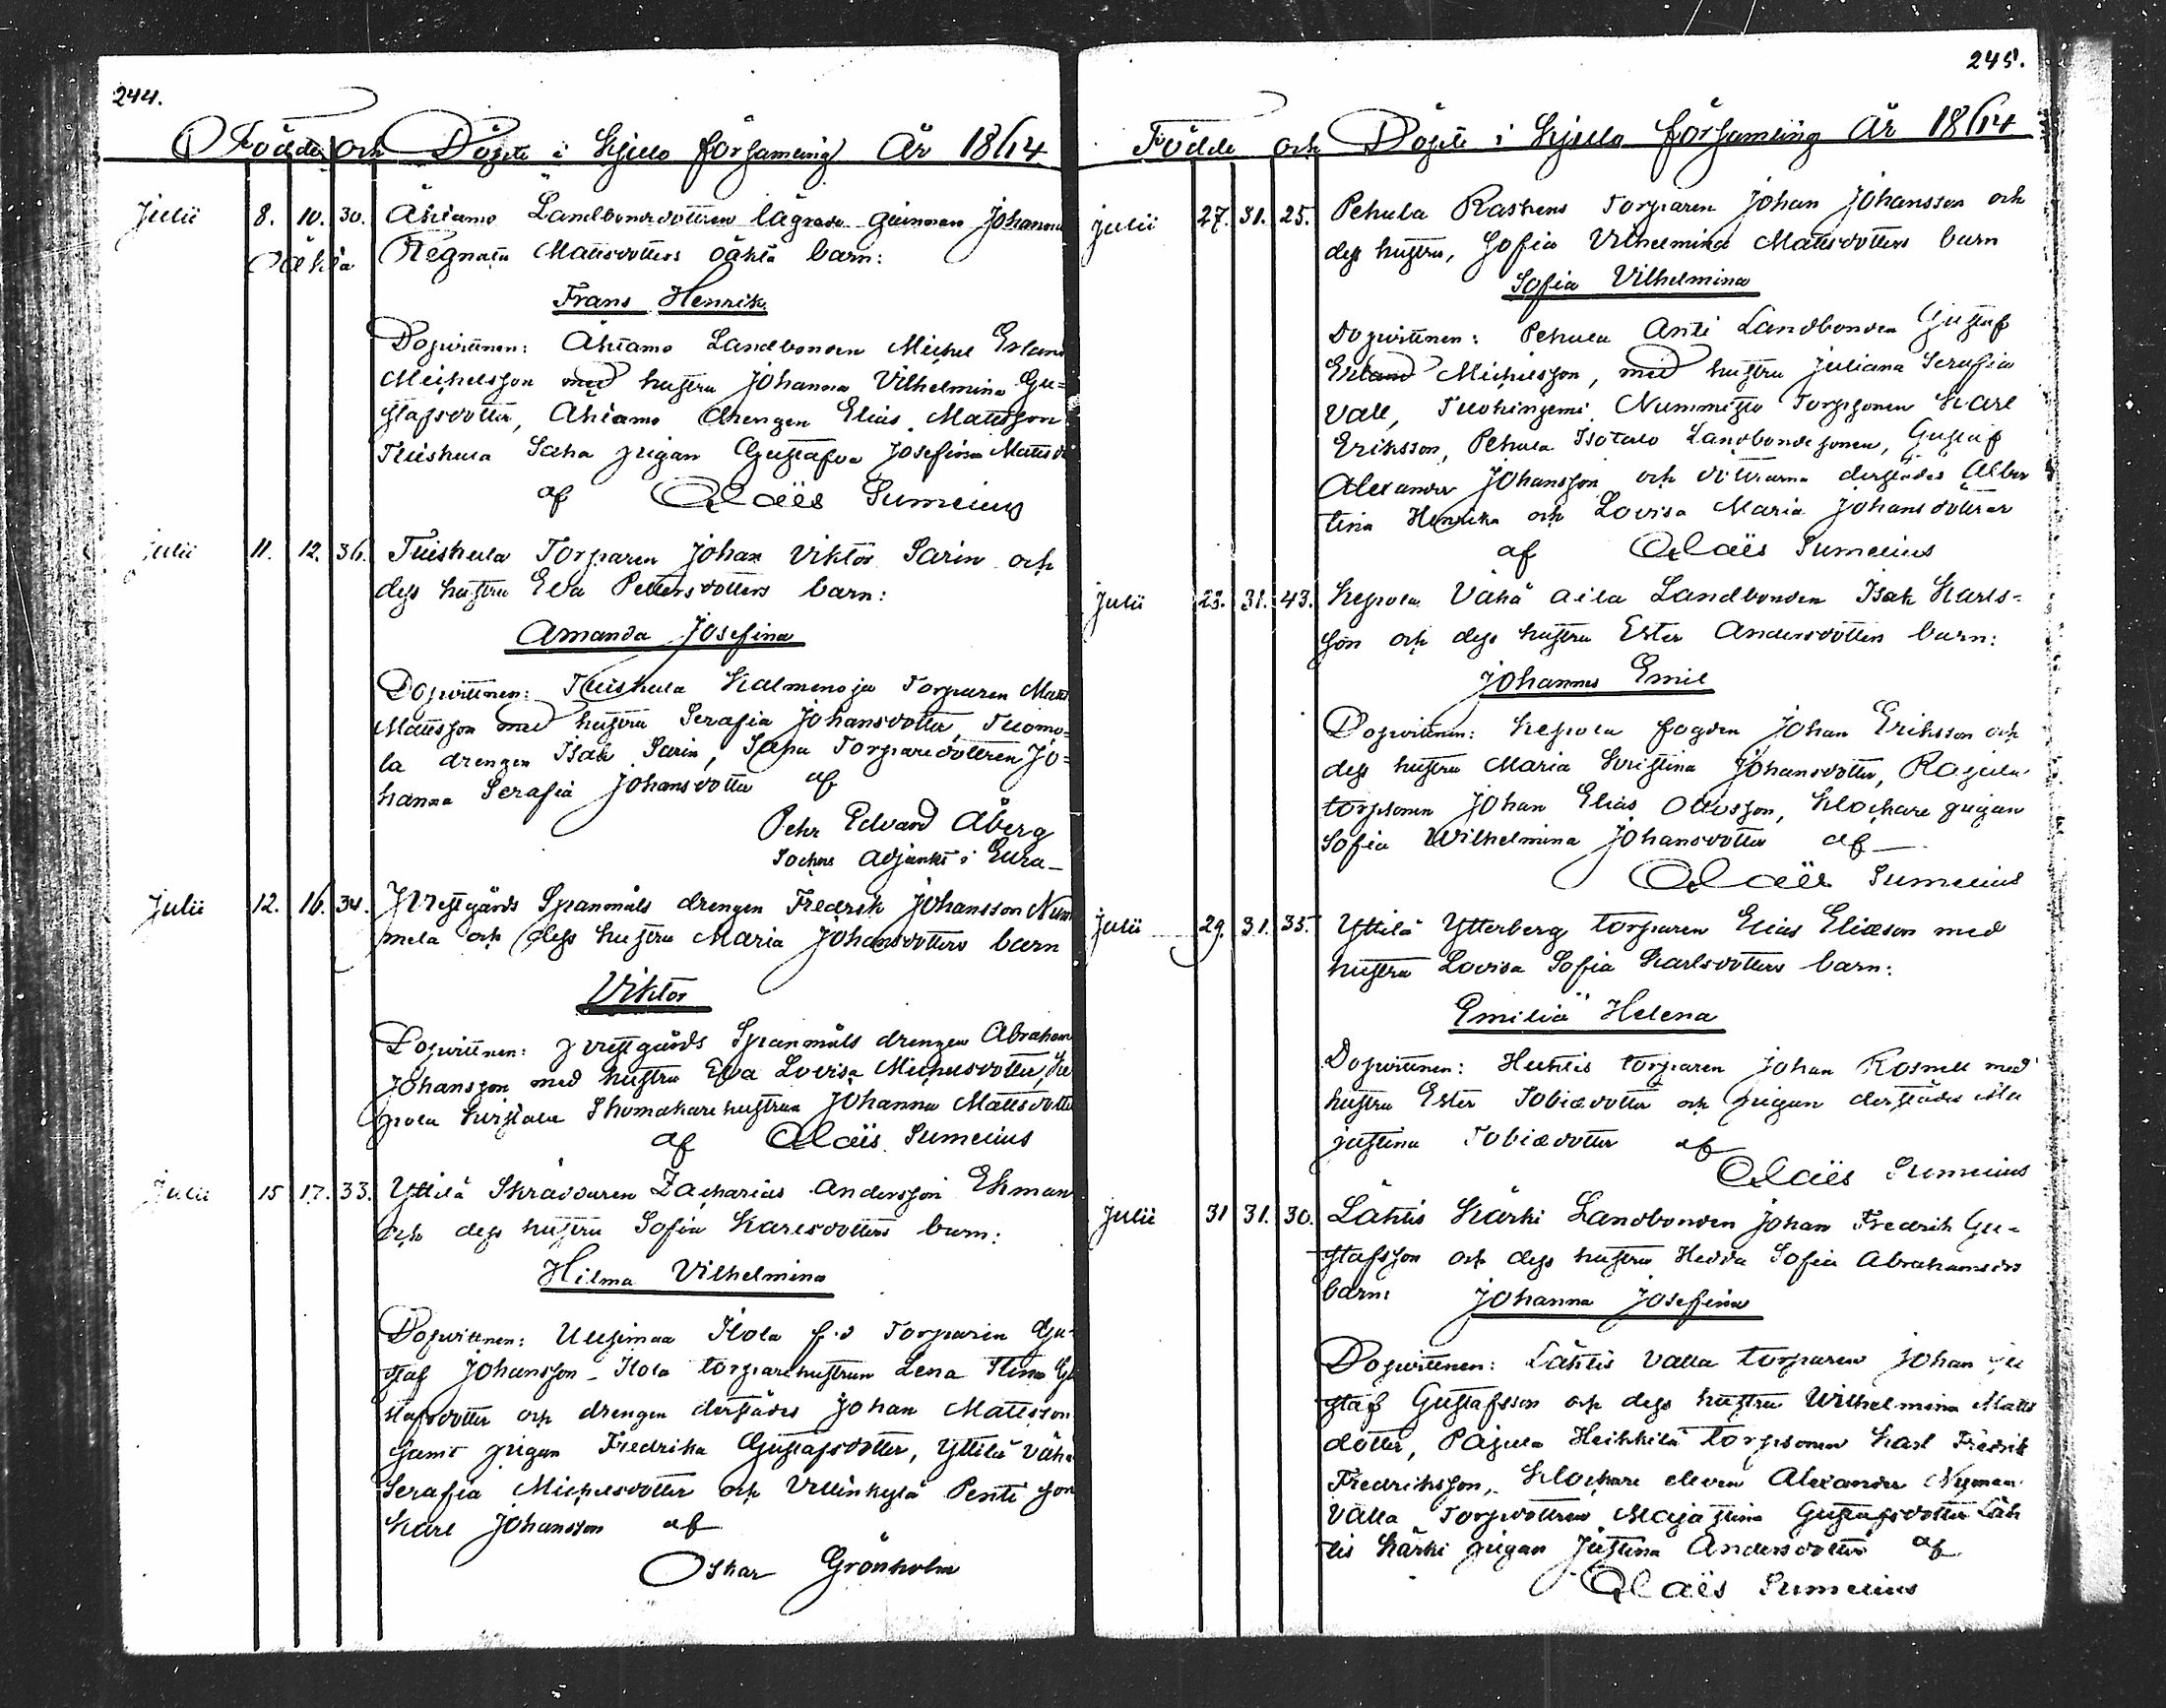 244.
Födde och Döpte i Kjulo församling År 18/14
Julii 8. 10. 30. Ähtamo Landbondedottren lägrade qvinnan Johanna
Oäkta Regnata Mattsdotters oäkta barn:
Frans Henrik
Dopvittnen: Ähtamo Landbonden Michel Erland
Michelsson med hustru Johanna Vilhelmina Gu=
stafsdotter, Ähtamo drengen Elias Mattsson
Tuiskula Saha pigan Gustafva Josefina Mattsd
af Claës Sumelius
Julii 11. 12. 36. Tuiskula Torparen Johan Viktor Sarin och
dess hustru Eva Pettersdotters barn:
Amanda Josefina
Dopvittnen: Tuiskula Kalmenoja Torparen Matts
Mattsson med hustru Serafia Johansdotter, Tuomo=
la drengen Isak Sarin, Torparedottren Jo=
hanna Serafia Johansdotter af
Pehr Edvard Åberg
Sockne adjunkt i Eura
Julii 12. 16. 34. Prestgårds Spanmåls drengen Fredrik Johansson Num
mela och dess hustru Maria Johansdotters barn
Viktor
Dopvittnen: Prestgårds Spanmåls drengen Abraham
Johansson med hustru Eva Lovisa Michelsdotter, Ke
pola Skomakarehustrun Johanna Mattsdotter
af Claës Sumelius
Julii 15 17. 33. Yttilä Skräddaren Zacharias Andersson Ekman
och dess hustru Sofia Karlsdotters barn:
Hilma Vilhelmina
Dopvittnen: Uusimaa Ilola f.d Torparen Gu=
staf Johansson Ilola torparehustrun Lena Stina Gu
stafsdotter och drengen derstädes Johan Mattsson
samt pigan Fredrika Gustafsdotter, Yttilä Vähä
Serafia Michelsdotter och Villinkylä Penti son
Karl Johansson af
Oskar Grönholm
245.
Födde och Döpte i Kjulo församling År 18/14
Julii 27. 31. 25. Pehula Raskens Torparen Johan Johansson och
dess hustru, Sofia Vilhelmina Mattsdotters barn
Sofia Vilhelmina
Dopvittnen: Pehula Anti Landbonden Gustaf
Erland Michelsson, med hustru Juliana Serafia
Vall, Tuohiniemi Nummisto Torpsonen Karl
Eriksson, Pehula Isotalo Landbondesonen, Gustaf
Alexander Johansson och döttrarna derstädes Alber
tina Henrika och Lovisa Maria Johansdöttrar
af Claës Sumelius
Julii 28. 31. 43. Kepola Vähä Aila Landbonden Isak Karls=
son och dess hustru Ester Andersdotters barn:
Johannes Emil
Dopvittnen: Kepola fogden Johan Eriksson och
dess hustru Maria Kristina Johansdotter,
torpsonen Johan Elias Ottosson, Klockare pigan
Sofia Wilhelmina Johansdotter af
Claës Sumelius
Julii 29. 31. 35. Yttilä Ytterberg torparen Elias Eliæson med
hustru Lovisa Sofia Karlsdotters barn:
Emilia Helena
Dopvittnen: Huhtis torparen Johan Rosnell med
hustru Ester Tobiædotter och pigan derstädes Ulla
Justina Tobiædotter af
Claës Sumelius
Julii 31 31. 30. Lähtis Kärki Landbonden Johan Fredrik Gu=
stafsson och dess hustru Hedda Sofia Abrahamsdrs
barn: Johanna Josefina
Dopvittnen: Lähtis Valla torparen Johan Gu
staf Gustafsson och dess hustru Wilhelmina Matts
dotter, Pajula Heikkilä torpsonen Karl Fredrik
Fredriksson, Klockare eleven Alexander Nyman
Valla Torpdottren Maja Stina Gustafsdotter Läh
tis Kärki pigan Justina Andersdotter af
Claës Sumelius